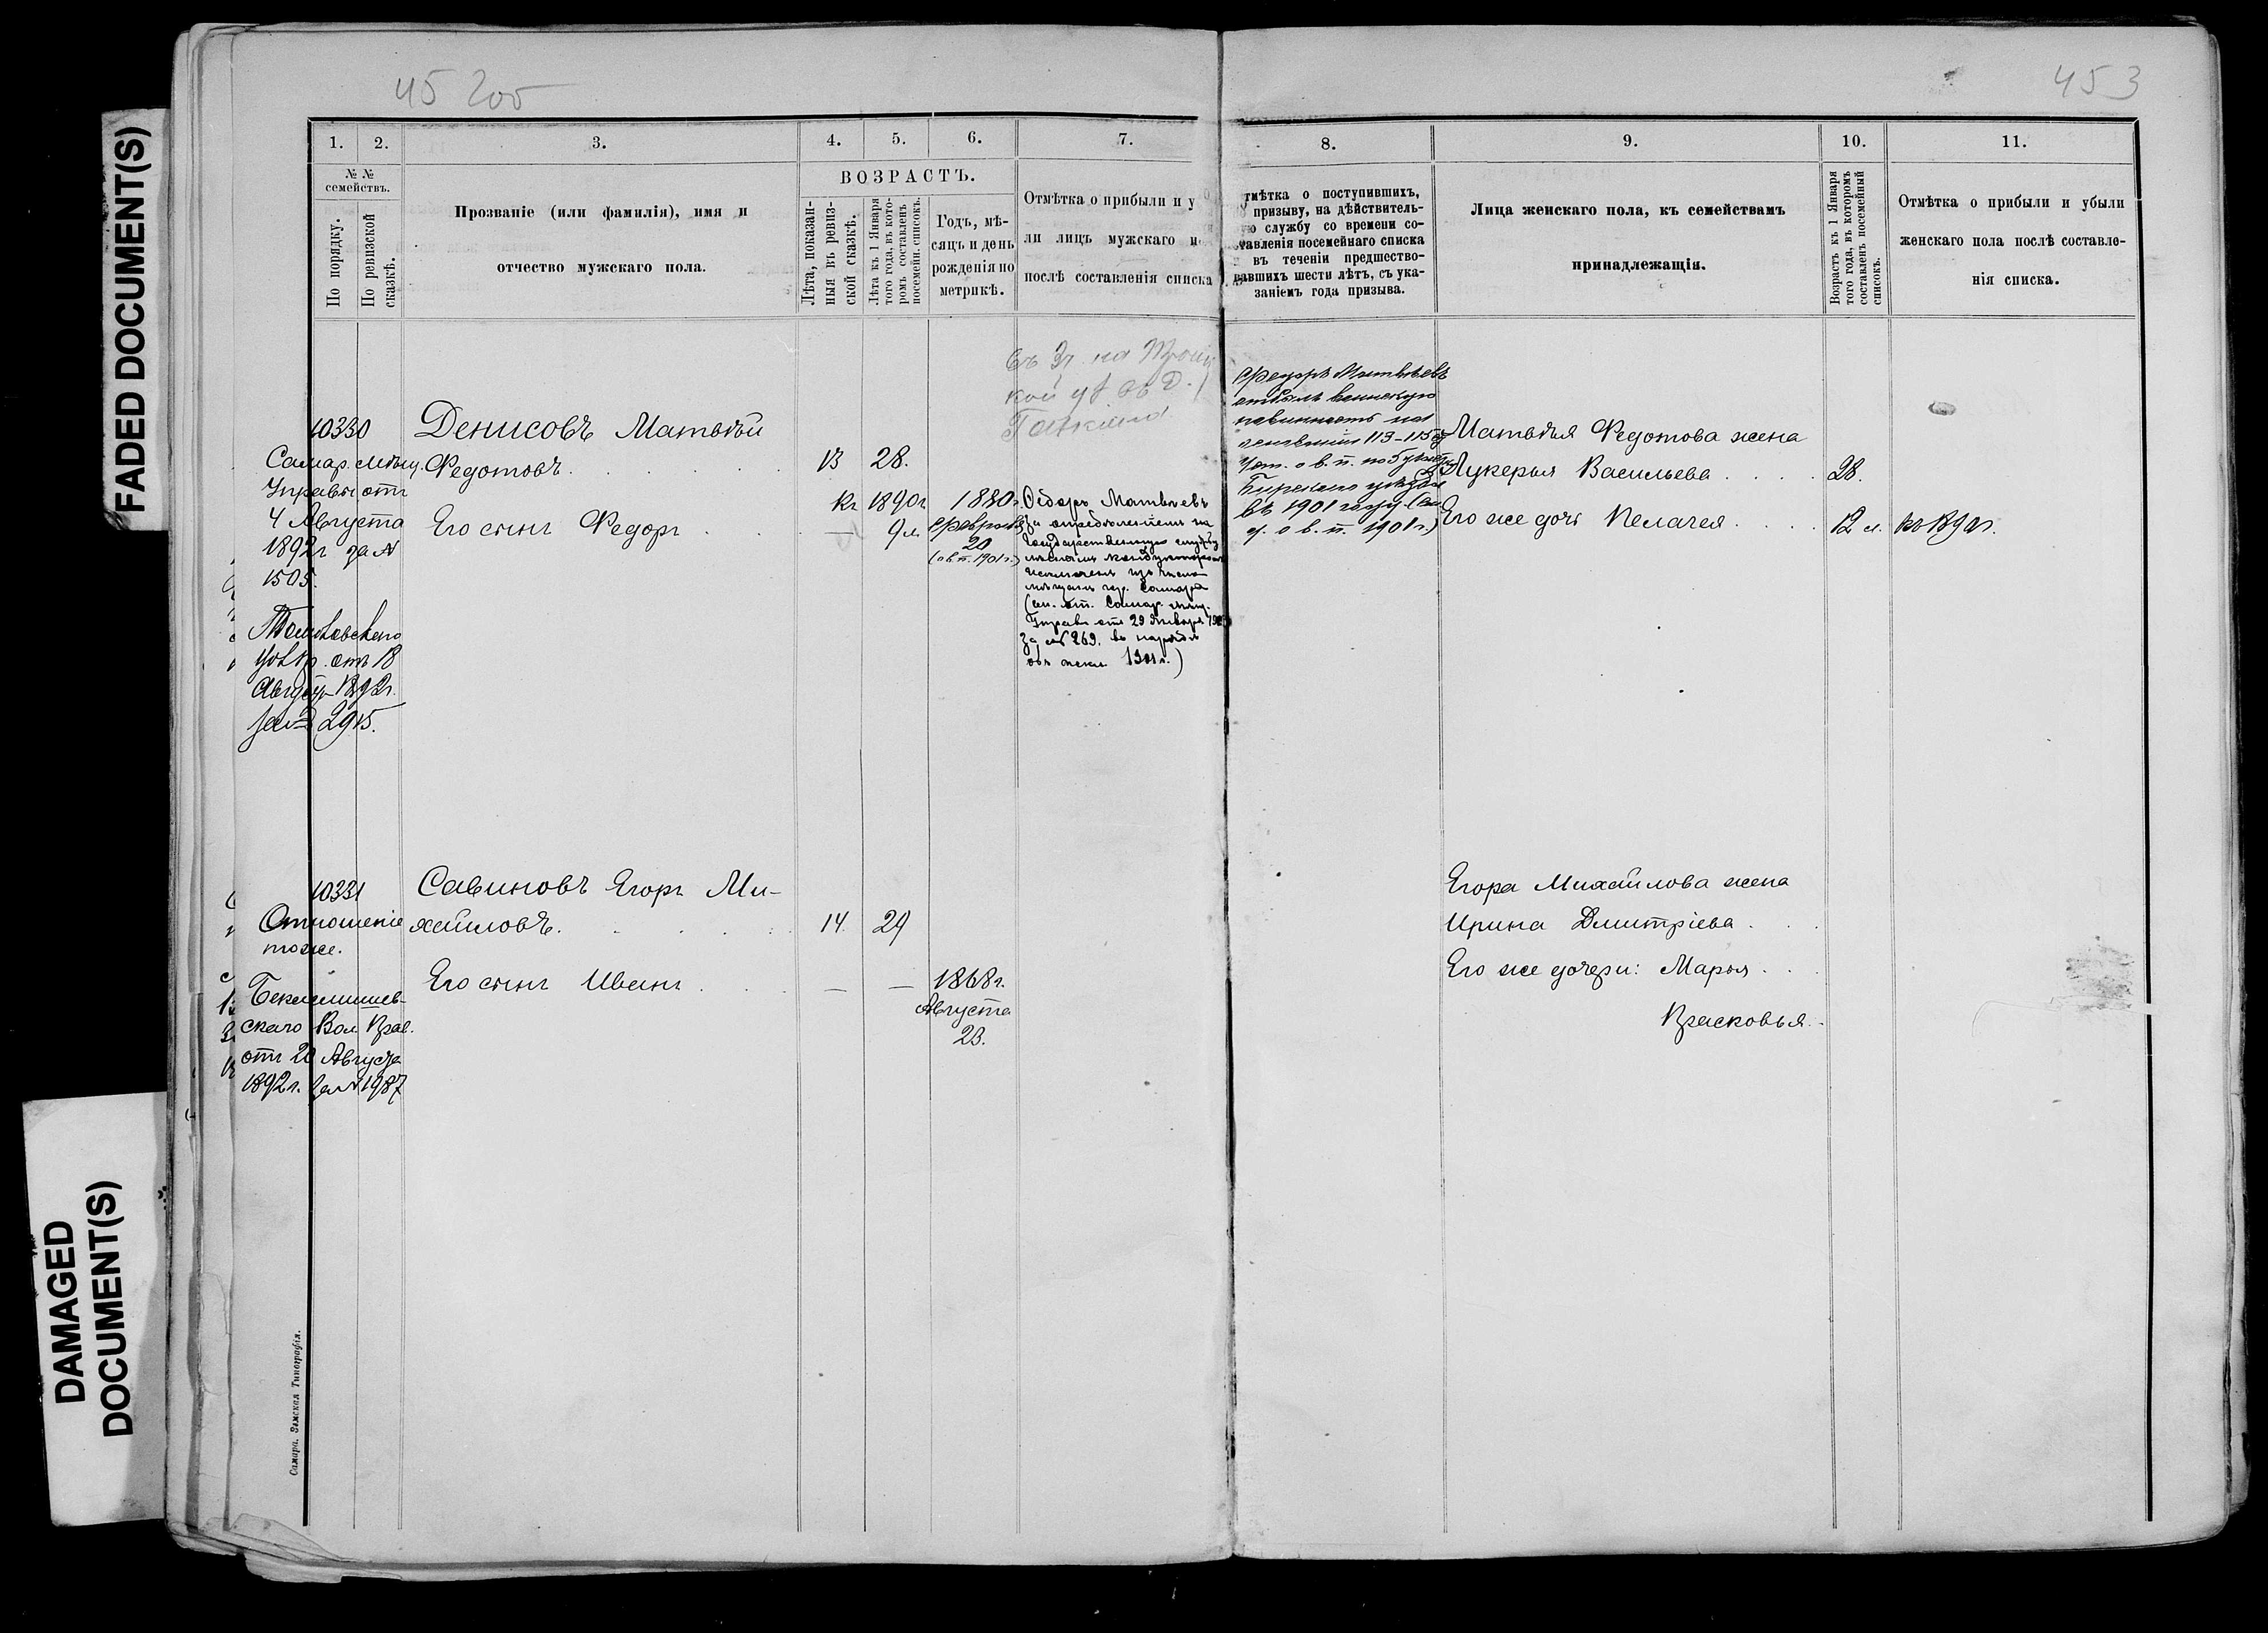 45 205
453
FADED DOCUMENT(S)
DAMAGED
DOCUMENT(S)
1. 2. 3. 4. 5. 6. 7.
№ №
семействъ.
По порядку.
По ревизской
сказкѣ.
Прозваніе (или фамилія), имя и
отчество мужскаго пола.
ВОЗРАСТЪ.
Лѣта, показан-
ныя въ ревиз-
ской сказкѣ.
Лѣта къ 1 Января
того года, въ кото-
ромъ составленъ
посемейн. списокъ.
Годъ, мѣ-
сяцъ и день
рожденія по
метрикѣ.
Отмѣтка о прибыли и у
ли лицъ мужскаго
послѣ составленія списка
8. 9. 10. 11.
тмѣтка о поступившихъ,
призыву, на дѣйствитель-
ю службу со времени со-
ставленія посемейнаго списка
въ теченіи предшество-
вавшихъ шести лѣтъ, съ ука-
заніемъ года призыва.
Лица женскаго пола, къ семействамъ
принадлежащія.
Возрастъ къ 1 Января
того года, въ которомъ
составленъ посемейный
списокъ.
Отмѣтка о прибыли и убыли
женскаго пола послѣ составле-
нія списка.
10330
Самар. Мѣщ.
Управы отъ
4 Августа
1892 г за №
1505.
отъ 18
Августа 1892 г.
за № 2915.
Денисовъ Матвѣй
Федотовъ. 13 28.
къ 1890 г
Его сынъ Федоръ — 9 л.
1880 г.
Февраля
20
(о в. п. 1901 г.)
Ѳедоръ Матвѣевъ
за опредѣленіемъ на
Государственную службу
исключенъ изъ числа
мѣщанъ гор. Самара
(сн. от. Самар. мѣщ.
Управы отъ 29 Января
за № 269. въ нарядѣ
объ искл. 1901 г.)
Федоръ Матвѣевъ
отбылъ воинскую
повинность на
основаніи 113-115 ст
Уст. о в. п. по
уѣзда
въ 1901 году (
о в. п. 1901 г.)
Матвѣя Федотова жена
Лукерья Васильева 28.
Его же дочь Пелагея 12 л. къ 1890 г.
10331
Отношеніе
тоже.
Беклемишев-
скаго Вол. Прав.
отъ 20 Августа
1892 г. за № 1987
Савиновъ Егоръ Ми-
хайловъ. 14. 29
Его сынъ Иванъ — —
1868 г.
Августа
23.
Егора Михайлова жена
Ирина Дмитріева
Его же дочери: Марья
Прасковья.
Самара. Земская Типографія.